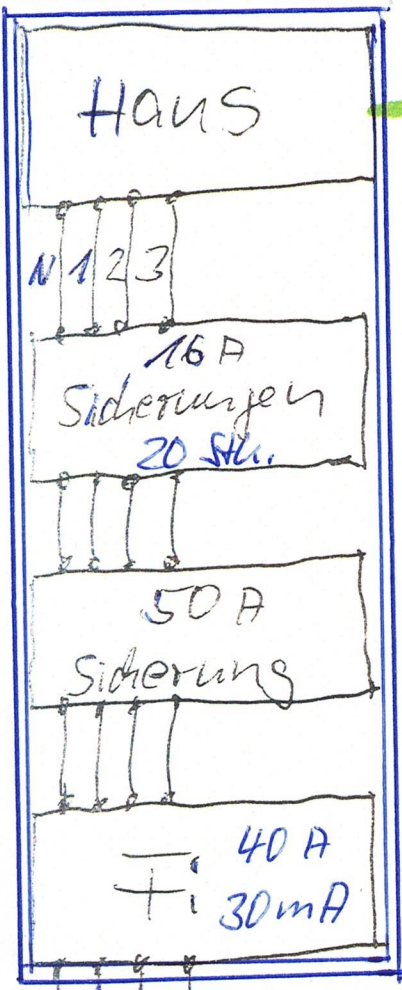 Haus
N 1 2 3
16 A
Sicherungen
20 Stk.
50 A
Sicherung
Fi 40 A
30mA